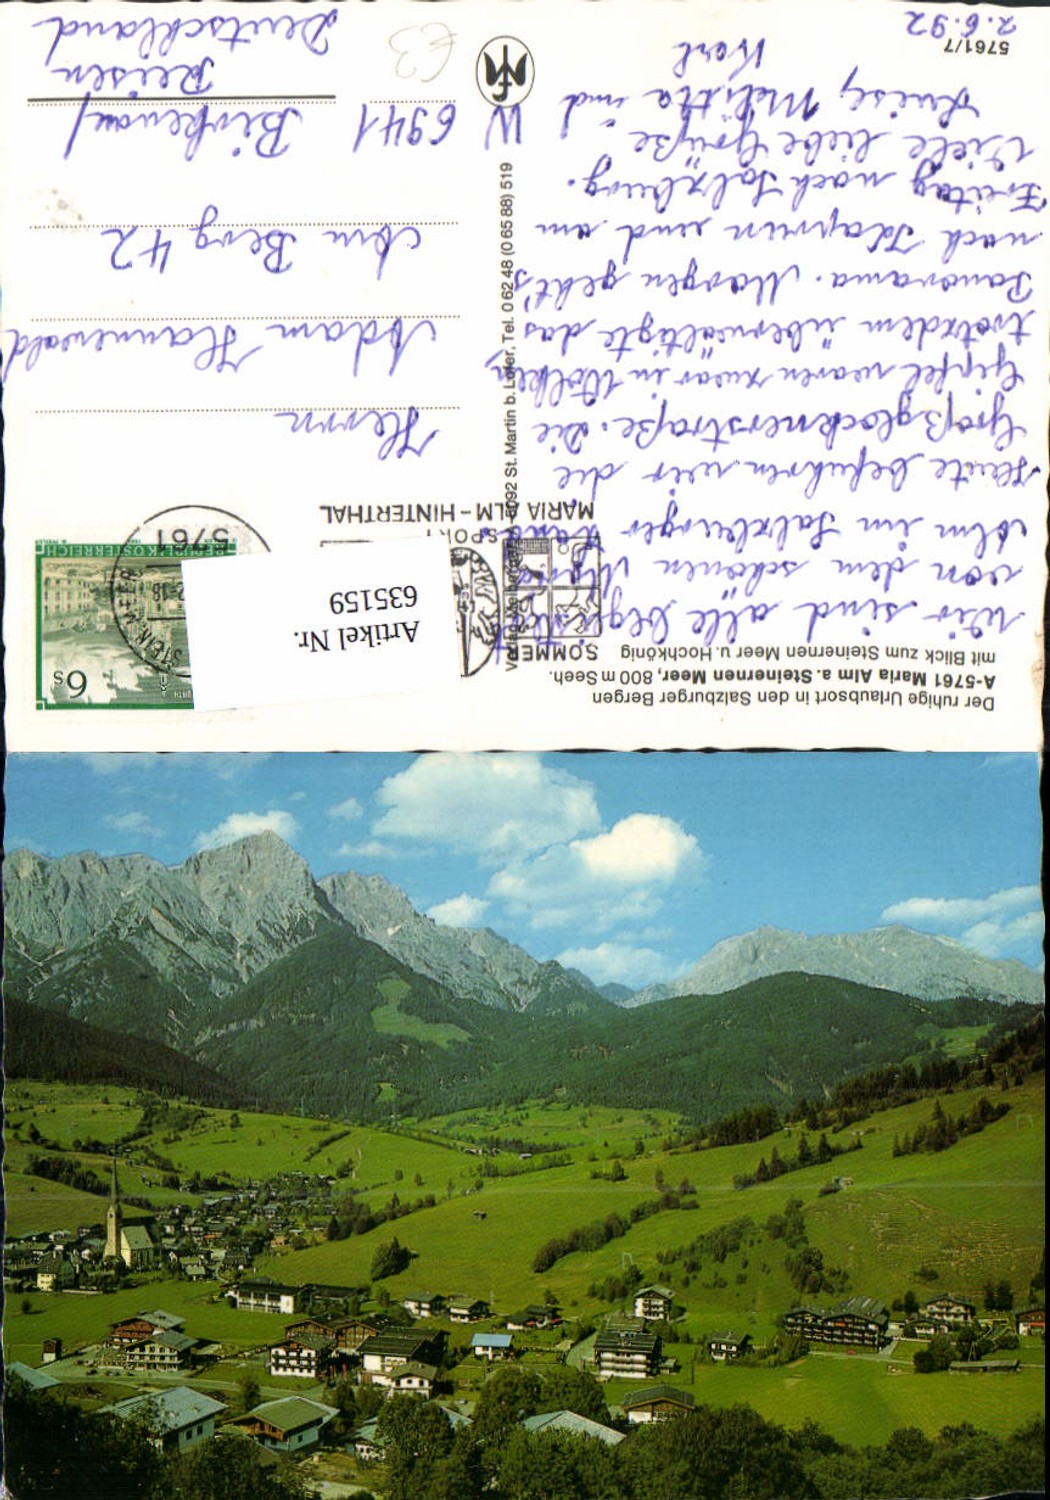 Der ruhige Urlaubsort in den Salzburger Bergen
A-5761 Maria Alm a. Steinernen Meer, 800 m Seeh.
mit Blick zum Steinernen Meer u. Hochkönig
Wir sind alle
von dem schönen Maria
Alm im Salzburger Land.
Heute befuhren wir die
Großglocknerstraße. Die
Gipfel waren zwar in Wolken,
trotzdem überwältigte das
Panorama. Morgen geht's
nach Kaprun und am
Freitag nach Salzburg.
Viele liebe Grüße
Luise, Melitta und
Karl
5761/7
2.6.92
SOMMER
SPORT
MARIA ALM - HINTERTHAL
5761
REPUBLIK ÖSTERREICH
6 S
Artikel Nr.
635159
Herrn
Adam Hannewald
Am Berg 42
W 6941 Birkenau/
Reisen
Deutschland
€3
St. Martin b. Lofer, Tel. 0 62 48 (0 65 88) 519